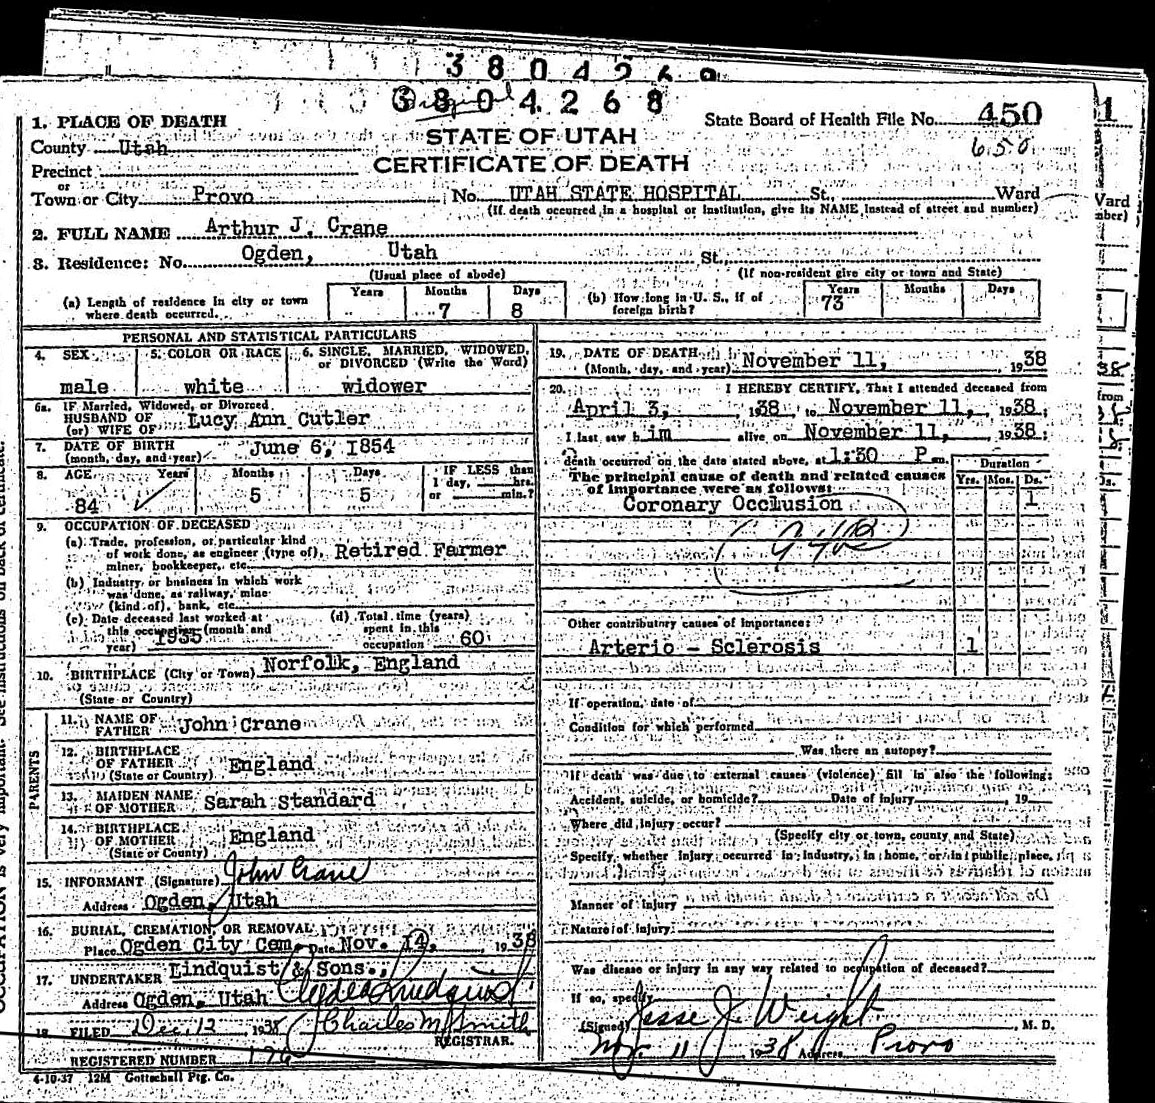 3804269
Original
3804268
1. PLACE OF DEATH
State Board of Health File No. 450
County Utah
STATE OF UTAH
650
Precinct
CERTIFICATE OF DEATH
or
Town or City Provo No. UTAH STATE HOSPITAL St., Ward
(If death occurred in a hospital or institution, give its NAME instead of street and number)
2. FULL NAME Arthur J. Crane
3. Residence: No. Ogden, Utah St.
(Usual place of abode) (If non-resident give city or town and State)
(a) Length of residence in city or town where death occurred Years Months 7 Days 8
(b) How long in U. S., if of foreign birth? Years 73 Months Days
PERSONAL AND STATISTICAL PARTICULARS
4. SEX 5. COLOR OR RACE 6. SINGLE, MARRIED, WIDOWED, or DIVORCED (Write the Word)
male white widower
6a. IF Married, Widowed, or Divorced
HUSBAND OF
(or) WIFE OF Lucy Ann Cutler
7. DATE OF BIRTH
(month, day, and year) June 6, 1854
8. AGE Years Months Days IF LESS than
1 day, hrs.
or min.?
84 5 5
9. OCCUPATION OF DECEASED
(a) Trade, profession, or particular kind
of work done, as engineer (type of), Retired Farmer
miner, bookkeeper, etc.
(b) Industry or business in which work
was done, as railway, mine
(kind of), bank, etc.
(c) Date deceased last worked at
this occupation (month and
year) 1935
(d) Total time (years)
spent in this
occupation 60
10. BIRTHPLACE (City or Town) Norfolk, England
(State or Country)
PARENTS
11. NAME OF
FATHER John Crane
12. BIRTHPLACE
OF FATHER England
(State or Country)
13. MAIDEN NAME
OF MOTHER Sarah Standard
14. BIRTHPLACE
OF MOTHER England
(State or Country)
15. INFORMANT (Signature) John Crane
Address Ogden, Utah
16. BURIAL, CREMATION, OR REMOVAL
Place Ogden City Cem. Date Nov. 14, 1938
17. UNDERTAKER Lindquist & Sons.,
Address Ogden, Utah
18. FILED Dec. 12 1938 Charles M Smith
REGISTRAR.
REGISTERED NUMBER
4-10-37 12M Gottschall Ptg. Co.
19. DATE OF DEATH
(Month, day, and year) November 11, 1938
20. I HEREBY CERTIFY, That I attended deceased from
April 3, 1938, to November 11, 1938;
I last saw him alive on November 11, 1938;
death occurred on the date stated above, at 1:30 P m.
The principal cause of death and related causes
of importance were as follows:
Duration
Yrs. Mos. Ds.
Coronary Occlusion 1
Other contributory causes of importance:
Arterio - Sclerosis 1
If operation, date of
Condition for which performed
Was there an autopsy?
If death was due to external causes (violence) fill in also the following:
Accident, suicide, or homicide? Date of injury 19
Where did injury occur?
(Specify city or town, county and State)
Specify whether injury occurred in industry, in home, or in public place,
Manner of injury
Nature of injury
Was disease or injury in any way related to occupation of deceased?
If so, specify
(Signed) Jesse J. Weight, M. D.
Nov. 11 1938 Address Provo